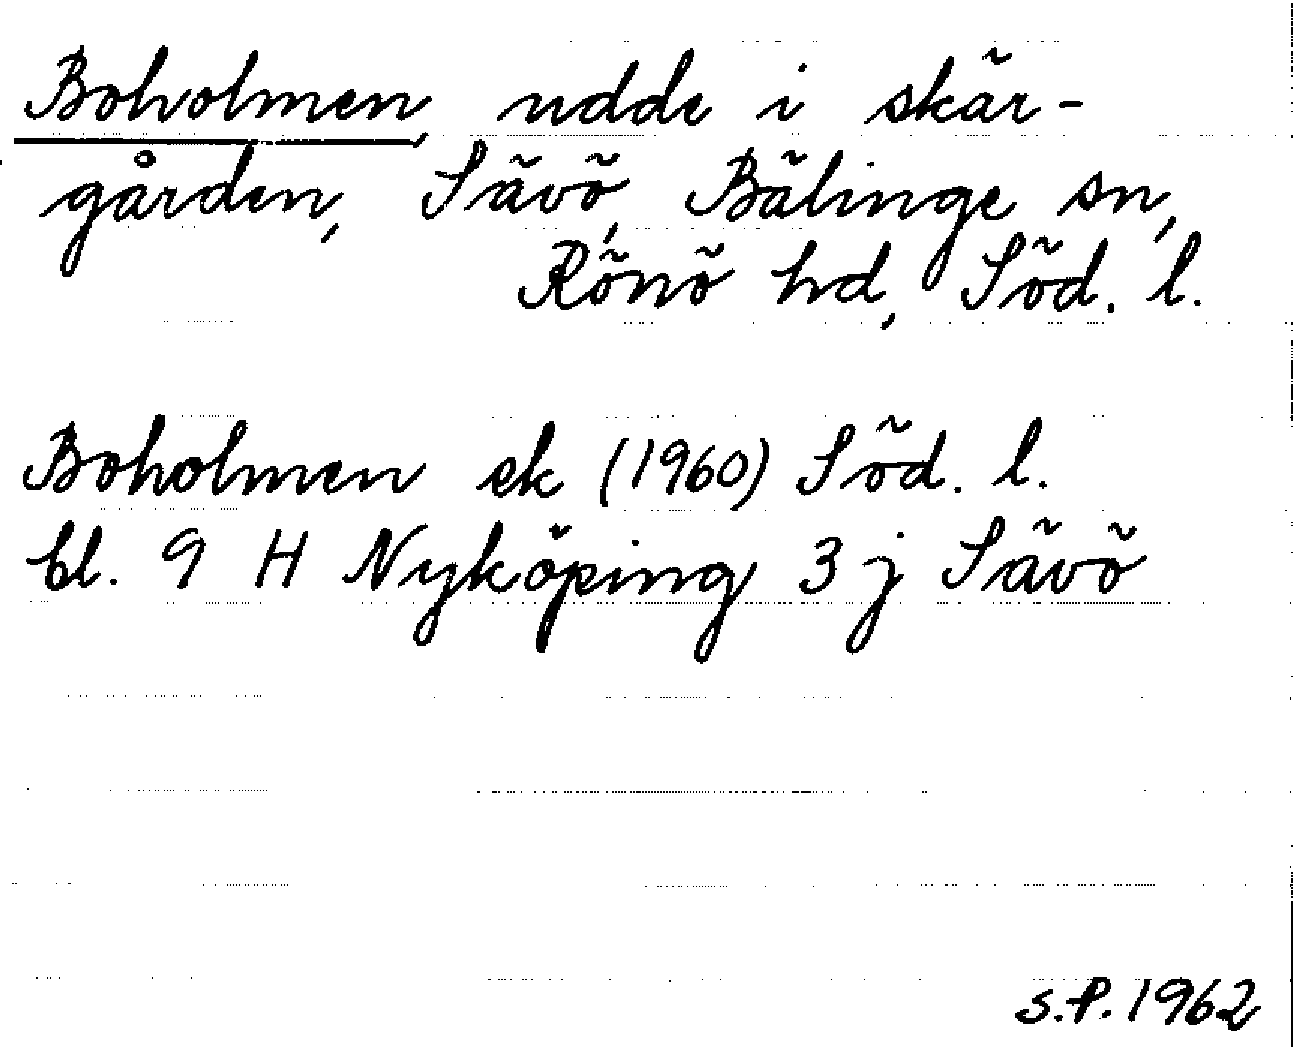 Boholmen, udde i skär-
gården, Sävö, Bälinge sn,
Rönö hd, Söd. l.
Boholmen ek (1960) Söd. l.
bl. 9 H Nyköping 3 j Sävö
S.P. 1962